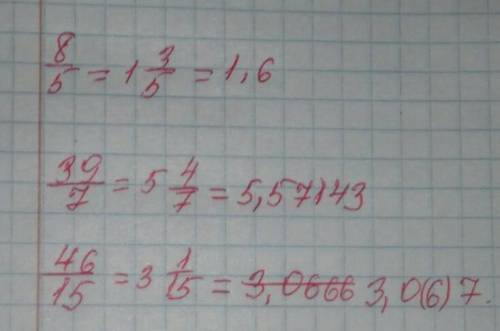 8/5 = 1 3/5 = 1,6
39/7 = 5 4/7 = 5,57143
46/15 = 3 1/15 = ~~3,0666~~ 3,0(6)7.